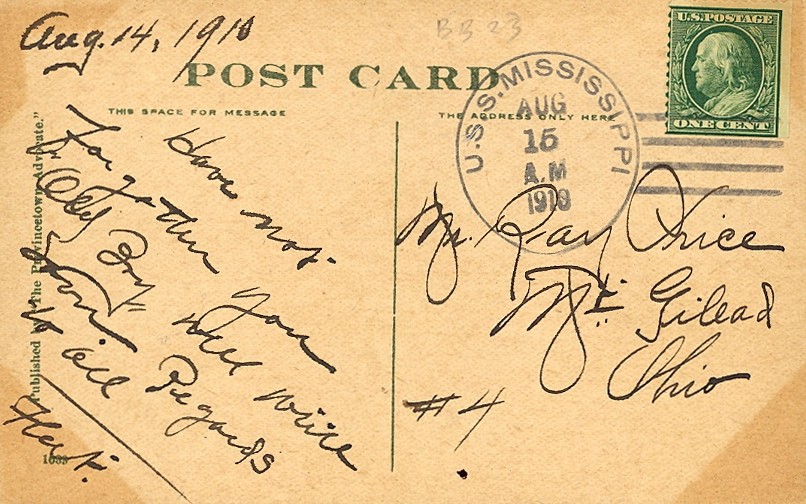 Aug. 14, 1910
BB 23
POST CARD
THIS SPACE FOR MESSAGE
THE ADDRESS ONLY HERE
U.S. POSTAGE
ONE CENT
U.S.S. MISSISSIPPI
AUG
15
A.M
1910
Published by The Provincetown Advocate."
Have not
forgotten you
"Old Boy" will write
soon Regards
to all
Mr. Ray
Mt. Gilead
Ohio
#4